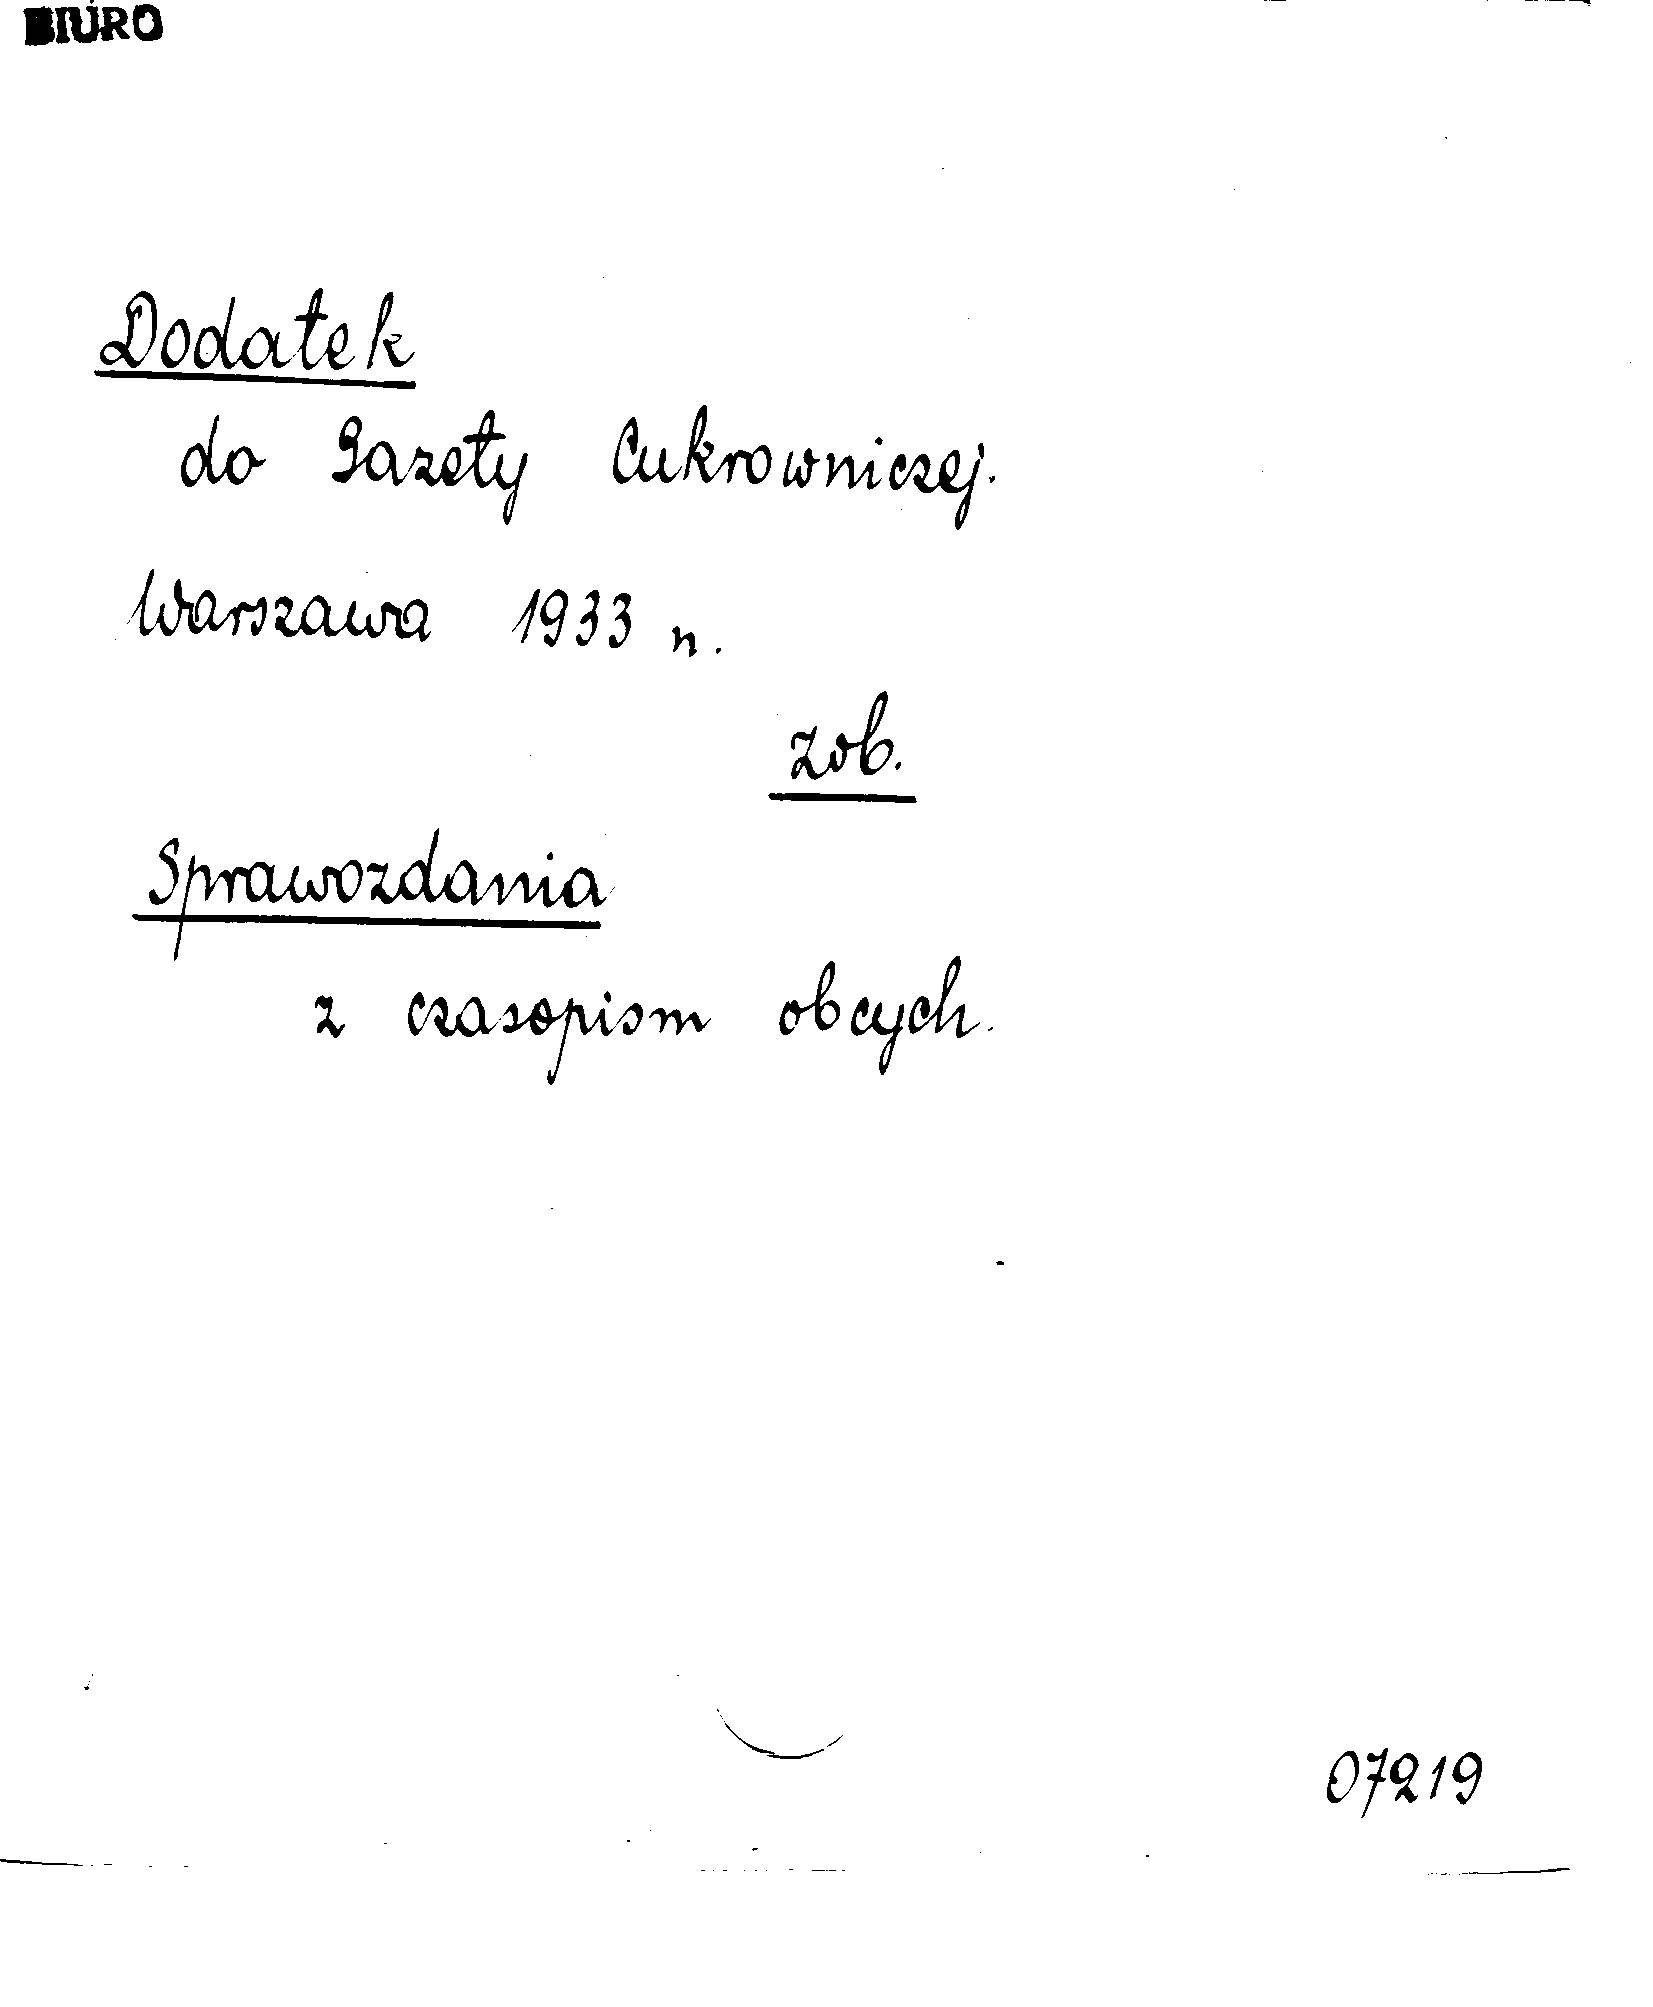 BIURO
Dodatek
do Gazety Cukrowniczej.
Warszawa 1933 n.
zob.
Sprawozdania
z czasopism obcych.
07219